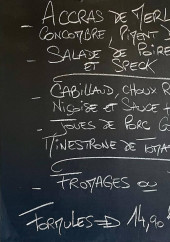 - ACCRAS DE MERL
CONCOMBRE, PIMENT D
- SALADE DE POIRE
ET SPECK
- CABILLAUD, CHOUX R
NIÇOISE ET SAUCE
- JOUES DE PORC G
MINESTRONE DE TOMA
- FROMAGES OU
FORMULES => 14,90